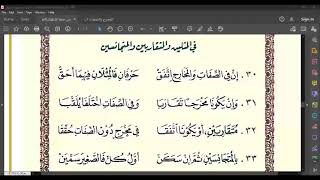 في المثلين والمتقاربين والمتجانسين
٣٠ إِنْ فِي الصِّفَاتِ وَالْمَخَارِجِ اتَّفَقْ حَرْفَانِ فَالْمِثْلَانِ فِيهِمَا أَحَقْ
٣١ وَإِنْ يَكُونَا مَخْرَجًا تَقَارَبَا وَفِي الصِّفَاتِ اخْتَلَفَا يُلَقَّبَا
٣٢ مُتَقَارِبَيْنِ، أَوْ يَكُونَا اتَّفَقَا فِي مَخْرَجٍ دُونَ الصِّفَاتِ حُقِّقَا
٣٣ بِالْمُتَجَانِسَيْنِ ثُمَّ إِنْ سَكَنْ أَوَّلُ كُلٍّ فَالصَّغِيرَ سَمِّيَنْ